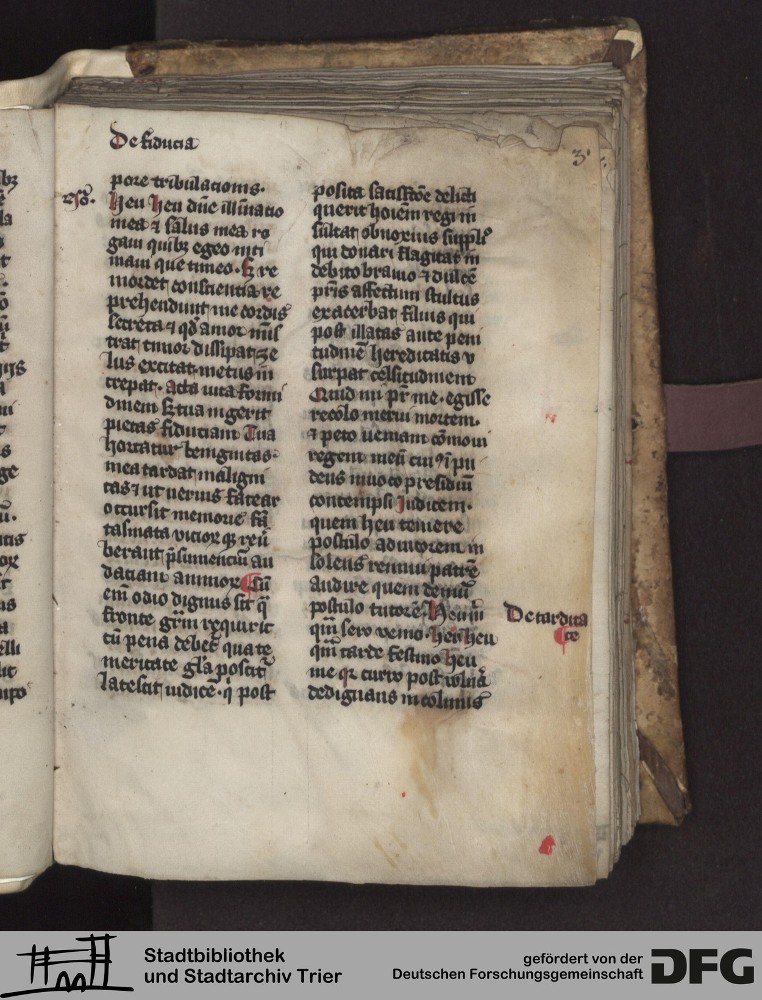 De fiducia
3
pore tribulationis.
Heu Heu dñe illuminatio
mea ⁊ salus mea ro
gam quibȝ egeo niti
mani que timeo. Sȝ re
mordet conscientia re
prehendunt me cordis
secreta ⁊ qd amor mĩs
trat timor dissipat ze
lus excitat metus in
crepat. Acta uita formi
dinem Sȝ tua ingerit
pietas fiduciam Tua
hortatur benignitas.
mea tardat maligni
tas ⁊ ut uerius fatear
occursit memorie fã
tasmata uicior qȝ reũ
berant p̃sumenciũ au
daciam animorum Cũ
em̃ odio dignus sit q̃
fronte grãm requirit
cũ pena debet qua te
meritate glã poscit
lacescit iudicẽ. q̇ post
posita satisfcõe delicti
querit hoiem regi in
sultat obnoxius suppli
qui donari flagitat in
debito brauio ⁊ dulcẽ
pr̃is affectum stultus
exacerbat filius qui
post illatas ante peni
tudinẽ hereditatis v
surpat celsitudinem
Quid mi pr̃ me. egisse
recolo merui mortem.
⁊ peto ueniam cõmoui
regem meũ cui
deus inuoco presidiũ
contempsi Iudicem.
quem heu temere
postulo adiutorem in
solens renuui patrẽ
audire quem demũ
postulo tutorẽ. Heu m̃
qm̃ sero uenio. heu heu
qm̃ tarde festino heu
me qȝ curro post uulnã
dedignans incolumis
De tardita
te
Stadtbibliothek
und Stadtarchiv Trier
gefördert von der
Deutschen Forschungsgemeinschaft
DFG